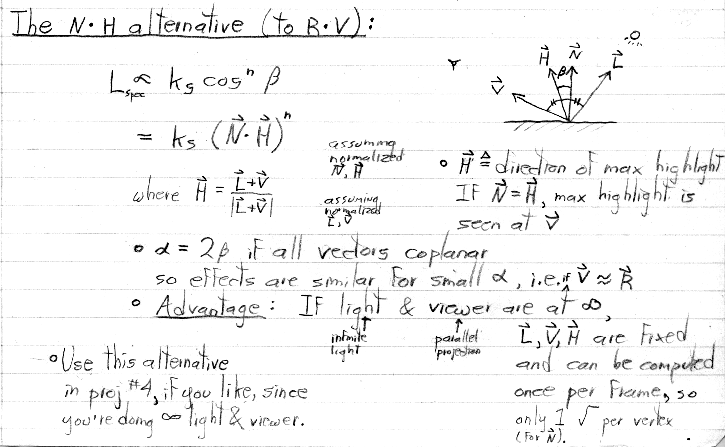 The N·H alternative (to R·V):
L⃗spec ∝ ks cosⁿ β
= ks (N⃗·H⃗)ⁿ
assuming normalized N⃗, H⃗
where H⃗ = L⃗+V⃗ / |L⃗+V⃗|
assuming normalized L⃗, V⃗
V⃗ H⃗ β N⃗ L⃗
• H⃗ ≜ direction of max highlight
IF N⃗=H⃗, max highlight is
seen at V⃗
• α = 2β if all vectors coplanar
so effects are similar for small α, i.e. if V⃗ ≈ R⃗
• Advantage: IF light & viewer are at ∞,
infinite light
parallel projection
L⃗, V⃗, H⃗ are fixed
and can be computed
once per frame, so
only 1 √ per vertex
(for N⃗).
• Use this alternative
in proj #4, if you like, since
you're doing ∞ light & viewer.